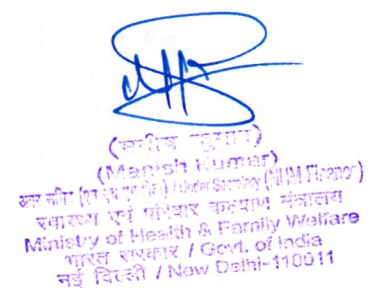 (मनीष कुमार)
(Manish Kumar)
अवर सचिव / Under Secretary (NHM Finance)
स्वास्थ्य एवं परिवार कल्याण मंत्रालय
Ministry of Health & Family Welfare
भारत सरकार / Govt. of India
नई दिल्ली / New Delhi-110011